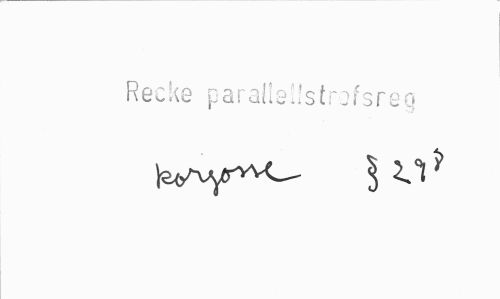 Recke parallellstrofsreg
korgosse § 298